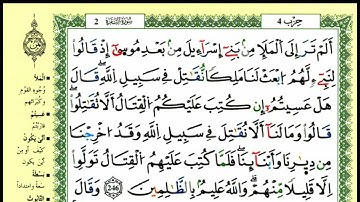 حِزْبُ 4
سُورَةُ الْبَقَرَةِ 2
أَلَمْ تَرَ إِلَى ٱلْمَلَإِ مِنۢ بَنِےٓ إِسْرَآءِيلَ مِنۢ بَعْدِ مُوس۪ىٰٓ إِذْ قَالُواْ
لِنَبِےٓءٍ لَّهُمُ ٱبْعَثْ لَنَا مَلِكاً نُّقَٰتِلْ فِے سَبِيلِ ٱللَّهِۖ قَالَ
هَلْ عَسِيتُمُۥٓ إِن كُتِبَ عَلَيْكُمُ ٱلْقِتَالُ أَلَّا تُقَٰتِلُواْۖ
قَالُواْ وَمَا لَنَآ أَلَّا نُقَٰتِلَ فِے سَبِيلِ ٱللَّهِ وَقَدُ ا۟خْرِجْنَا
مِن دِيٰ۪رِنَا وَأَبْنَآئِنَاۖ فَلَمَّا كُتِبَ عَلَيْهِمُ ٱلْقِتَالُ تَوَلَّوِاْ
اِلَّا قَلِيلاً مِّنْهُمْۖ وَٱللَّهُ عَلِيمُۢ بِٱلظَّٰلِمِينَ 246 وَقَالَ
الْمَلَأ
وُجُوهِ القَوْمِ
وَكُبَرَائِهِم
عَسِيتُمْ
أَنَّى يَكُونُ
كَيْفَ. أو من
أَيْنَ يَكُونُ
بَسْطَةً
سَعَةً وَامْتِدَاداً